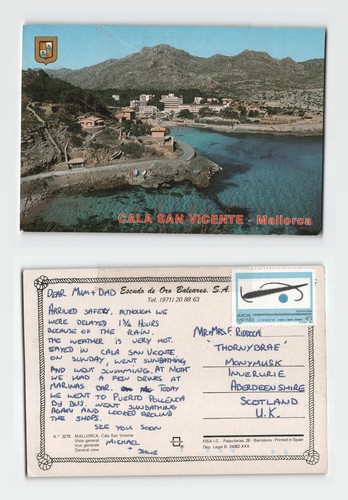 CALA SAN VICENTE - Mallorca
Escudo de Oro Baleares, S.A.
Tel. (971) 20 88 63
DEAR MUM + DAD
ARRIVED SAFELY, ALTHOUGH WE
WERE DELAYED 1¾ HOURS
BECAUSE OF THE RAIN.
THE WEATHER IS VERY HOT.
STAYED IN CALA SAN VICENTE
ON SUNDAY, WENT SUNBATHING
AND WENT SWIMMING. AT NIGHT
WE HAD A FEW DRINKS AT
MARINAS BAR. TODAY
WE WENT TO PUERTO POLLENCA
BY BUS. WENT SUNBATHING
AGAIN AND LOOKED AROUND
THE SHOPS.
SEE YOU SOON
MICHAEL
+ JULIE
MR + MRS. F.
"THORNYBRAE"
MONYMUSK
INVERURIE
ABERDEENSHIRE
SCOTLAND
U.K.
MALLORCA. Cala San Vicente
Vista general
Vue générale
General view
FISA I.G. Palaudarias, 26 - Barcelona - Printed in Spain